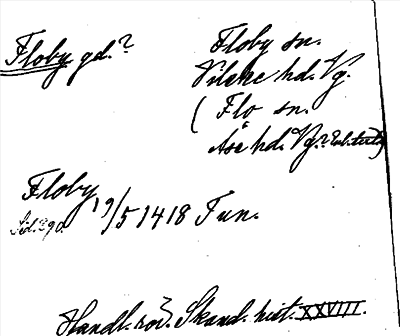 Floby gd.?
Floby sn.
Vilske hd. Vg.
( Flo sn.
Åse hd. Vg.?
Floby
19/5 1418 Tun.
Handl. rör. Skand. hist. XXVIII.